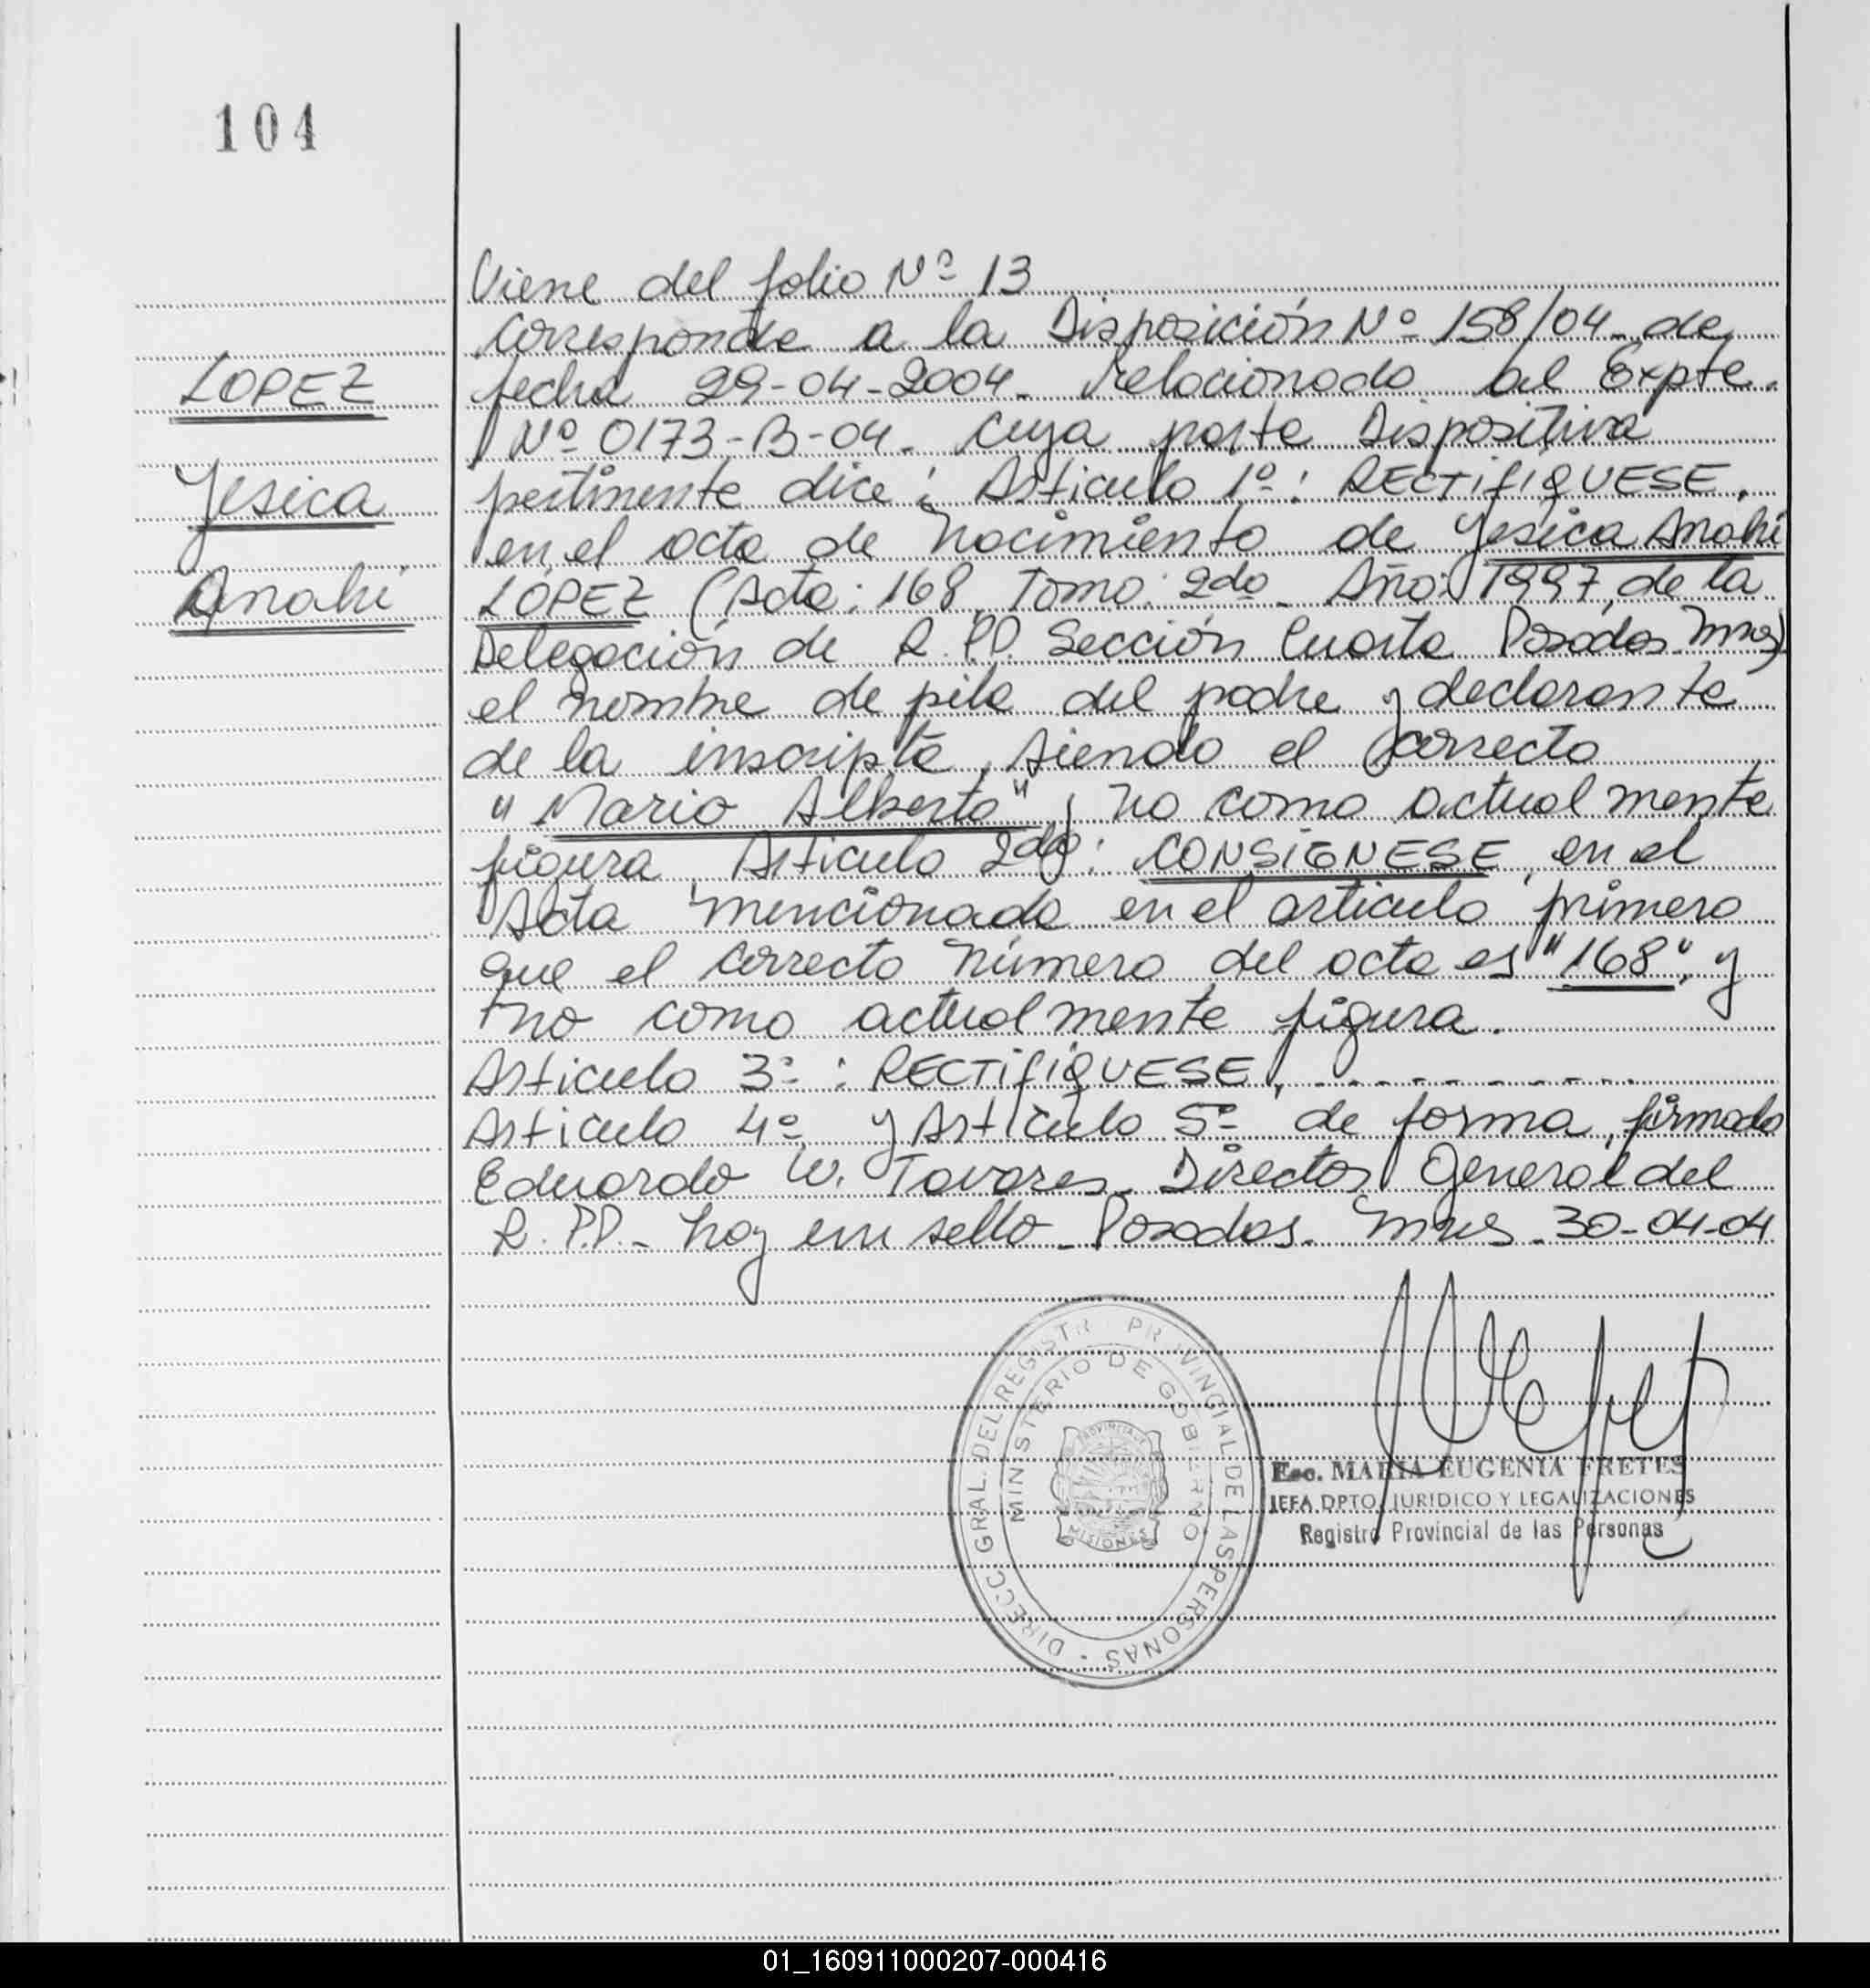 104
Viene del folio Nº 13
Corresponde a la Disposición Nº 158/04 - de
LOPEZ
fecha 29-04-2004 - Relacionado al Expte.
Nº 0173-B-04. Cuya parte Dispositiva
Yesica
pertinente dice: Articulo 1º: RECTIFIQUESE,
en el acta de Nacimiento de Yesica Anahi
Anahi
LOPEZ (Acta: 168, Tomo: 2do - Año: 1997, de la
Delegación de R.P.P. Sección Cuarta Posadas Mnes)
el nombre de pila del padre y declarante
de la inscripta, siendo el correcto
"Mario Alberto" y no como actualmente
figura. Articulo 2do: CONSIGNESE, en el
Acta mencionada en el articulo primero
que el correcto número del acta es "168", y
no como actualmente figura.
Articulo 3º: RECTIFIQUESE, - - - - - - - - - -
Articulo 4º y Articulo 5º de forma, firmado
Eduardo W. Tavares - Director General del
R.P.P. - hay un sello - Posadas. Mnes - 30-04-04
DIRECC. GRAL. DEL REGISTR PR VINCIAL DE LAS PERSONAS
MINISTERIO DE GOBIERNO
PROVINCIA DE
MISIONES
Esc. MARIA EUGENIA FRETES
JEFA DPTO. JURIDICO Y LEGALIZACIONES
Registro Provincial de las Personas
01_160911000207-000416